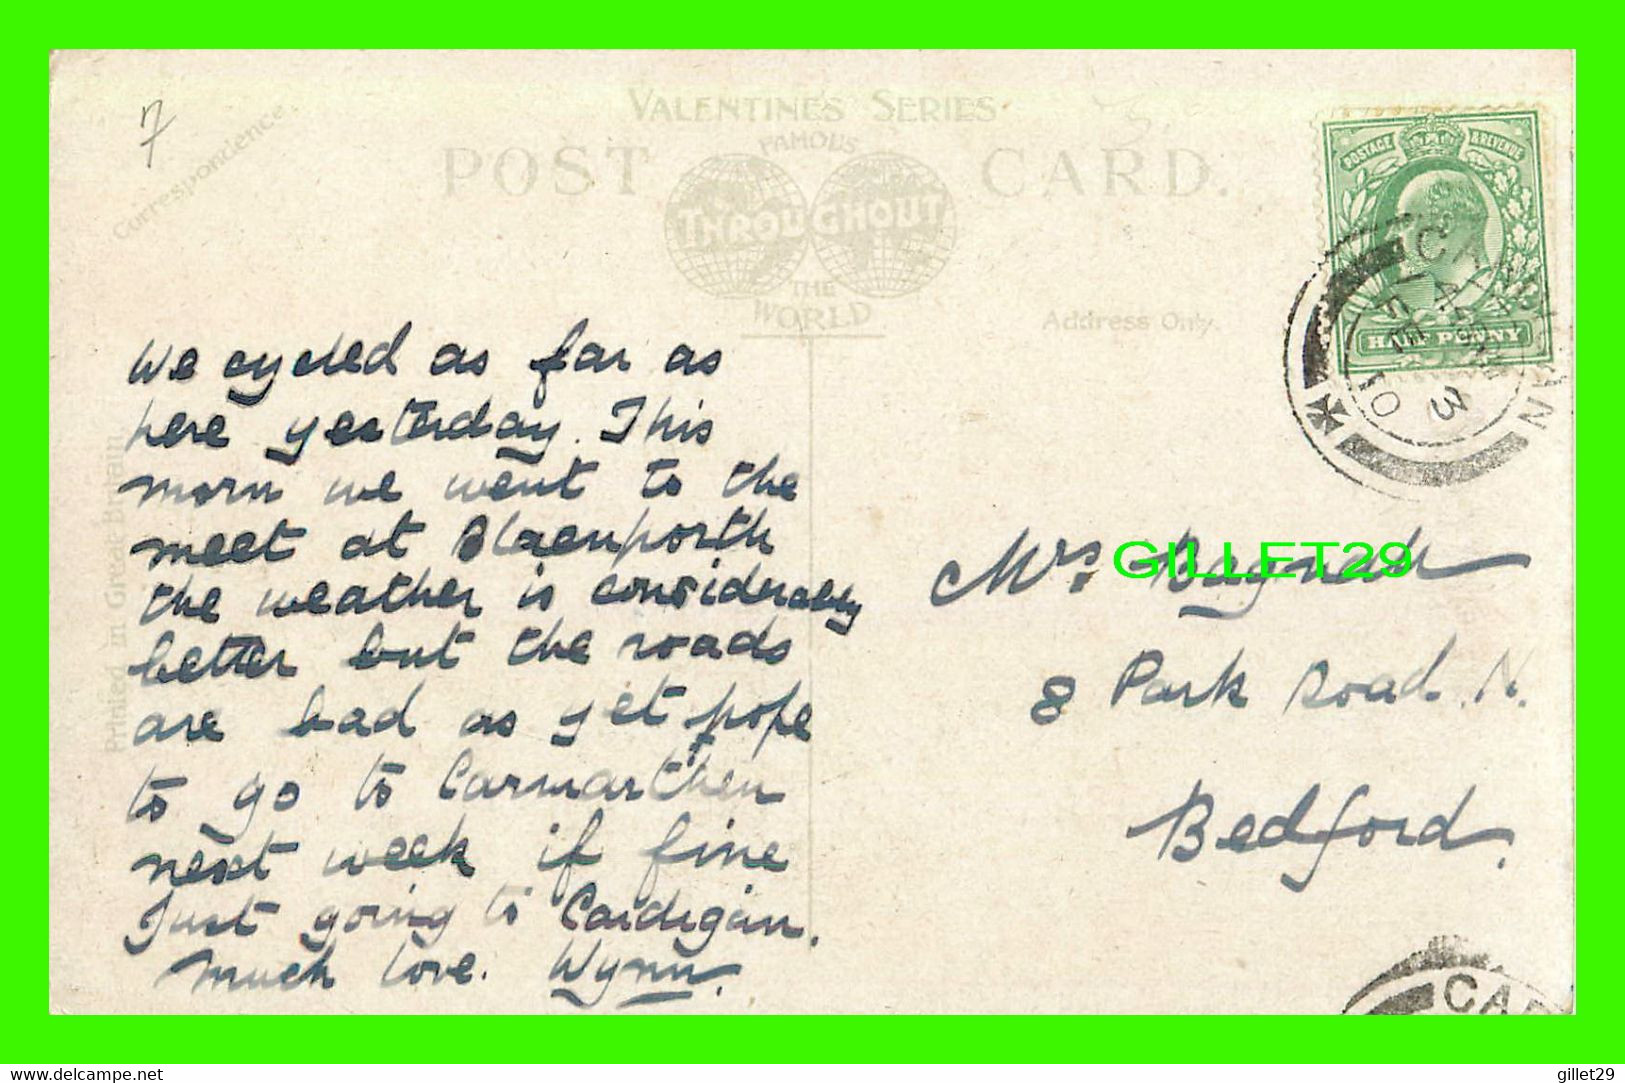 7
Correspondence
VALENTINE'S SERIES
POST CARD.
FAMOUS
THROUGHOUT
THE
WORLD
Address Only.
POSTAGE & REVENUE
HALF PENNY
CARDIGAN
FE 3
10
Printed in Great Britain
We cycled as far as
here yesterday. This
morn we went to the
meet at Blaenporth
the weather is considerably
better but the roads
are bad as yet hope
to go to Carmarthen
next week if fine
Just going to Cardigan.
Much love. Wynn.
Mrs. Bagnall
8 Park Road. N.
Bedford.
GILLET29
CAR
delcampe.net
gillet29